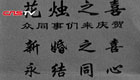 花烛之喜
众同事们来庆贺
新婚之喜
永结同心